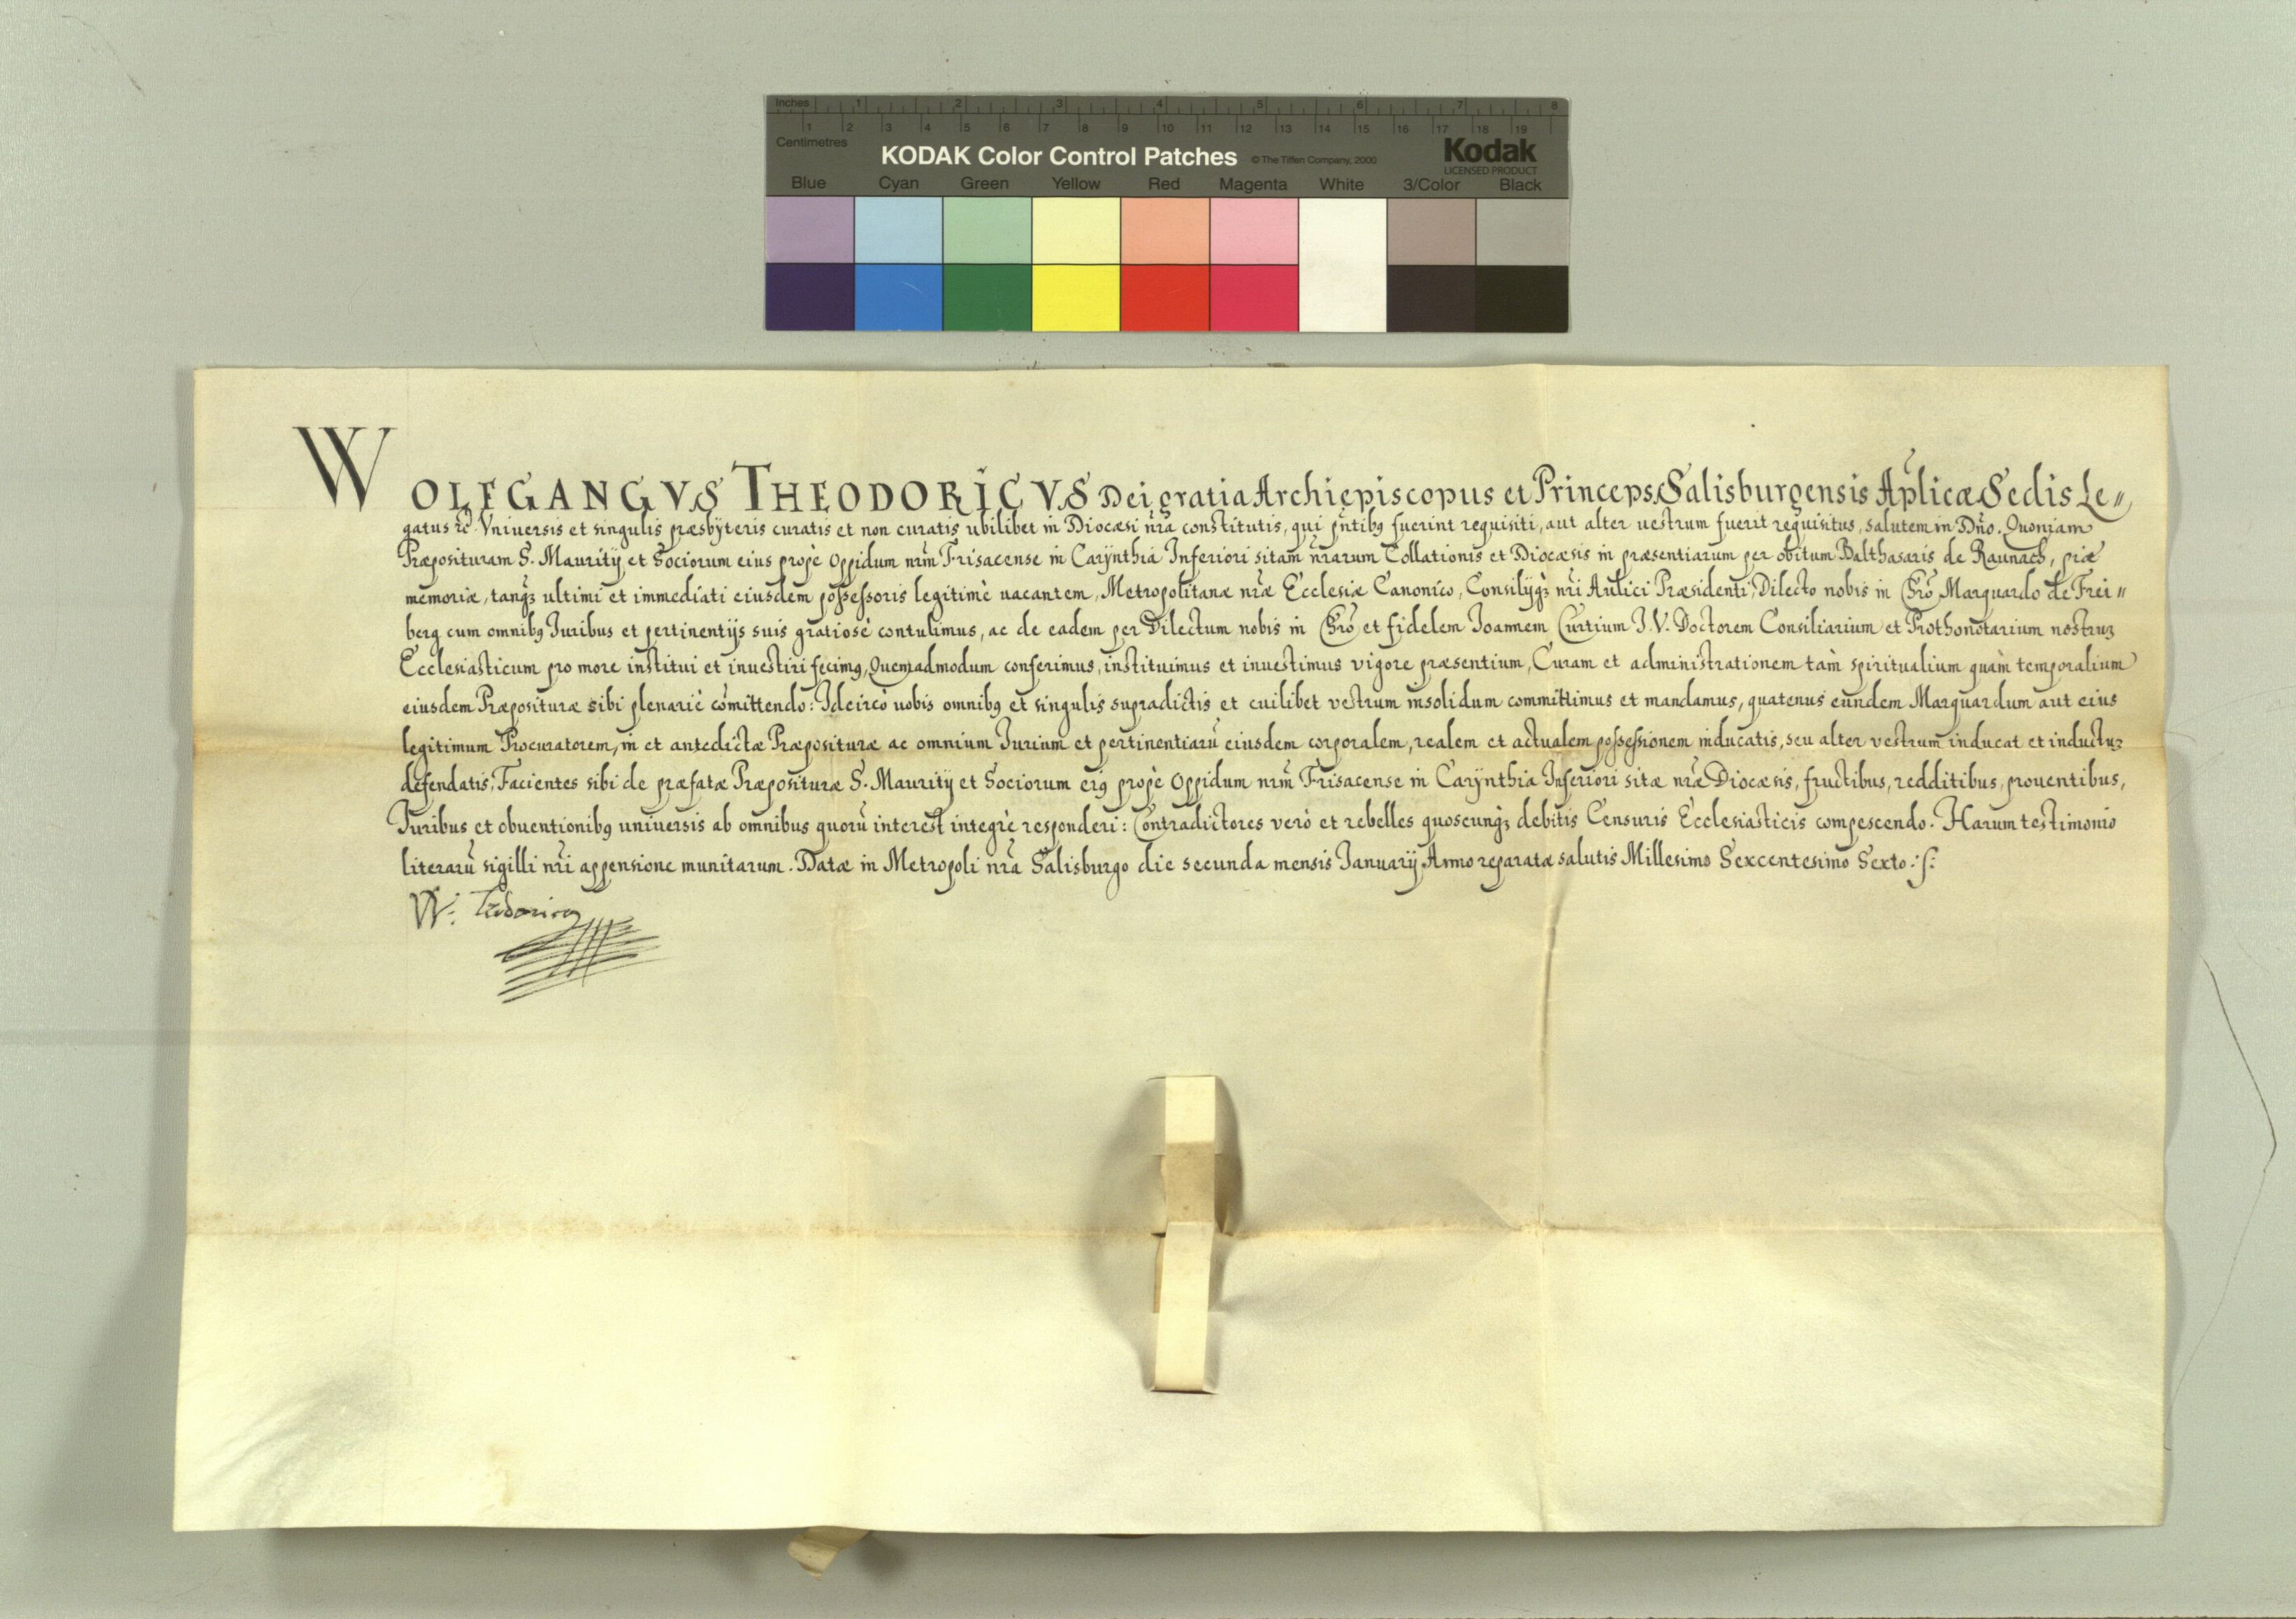 Inches 1 2 3 4 5 6 7 8
1 2 3 4 5 6 7 8 9 10 11 12 13 14 15 16 17 18 19
Centimetres
KODAK Color Control Patches © The Tiffen Company, 2000 Kodak
LICENSED PRODUCT
Blue Cyan Green Yellow Red Magenta White 3/Color Black
WOLFGANGVS THEODORICVS Dei gratia Archiepiscopus et Princeps Salisburgensis Aplicæ Sedis Le〃
gatus ꝛc̃ Vniuersis et singulis præsbyteris curatis et non curatis ubilibet in Diocæsi nr̃a constitutis, qui pñtibꝰ fuerint requisiti, aut alter uestrum fuerit requisitus, salutem in Dño. Quoniam
Præposituram S. Maurity et Sociorum eius propè Oppidum nrm̃ Frisacense in Carynthia Inferiori sitam nr̃arum Collationis et Diocæsis in præsentiarum per obitum Balthasaris de Raunach, piæ
memoriæ, tanqꝫ ultimi et immediati eiusdem possessoris legitimè uacantem, Metropolitanæ nr̃æ Ecclesiæ Canonico, Consilyqꝫ nr̃i Aulici Præsidenti, Dilecto nobis in Chr̃o Marquardo de Frei〃
berg cum omnibꝰ Iuribus et pertinentijs suis gratiosè contulimus, ac de eadem per Dilectum nobis in Chr̃o et fidelem Ioannem Curtium I. V. Doctorem Consiliarium et Prothonotarium nostruꝫ
Ecclesiasticum pro more institui et inuestiri fecimꝰ, Quemadmodum conferimus, instituimus et inuestimus vigore præsentium, Curam et administrationem tàm spiritualium quàm temporalium
eiusdem Præposituræ sibi plenariè cõmittendo: Idcircò uobis omnibꝰ et singulis supradictis et cuilibet vestrum insolidum committimus et mandamus, quatenus eundem Marquardum aut eius
legitimum Procuratorem, in et antedictæ Præposituræ ac omnium Iurium et pertinentiarũ eiusdem corporalem, realem et actualem possessionem inducatis, seu alter vestrum inducat et inductuꝫ
defendatis, Facientes sibi de præfatæ Præposituræ S. Maurity et Sociorum eiꝰ propè Oppidum nrm̃ Frisacense in Carynthia Inferiori sitæ nr̃æ Diocæsis, fructibus, redditibus, prouentibus,
Iuribus et obuentionibꝰ uniuersis ab omnibus quorũ interest integrè responderi: Contradictores verò et rebelles quoscunqꝫ debitis Censuris Ecclesiasticis compescendo. Harum testimonio
literarũ sigilli nr̃i appensione munitarum. Datæ in Metropoli nr̃a Salisburgo die secunda mensis Ianuarij Anno reparatæ salutis Millesimo Sexcentesimo Sexto.
W.